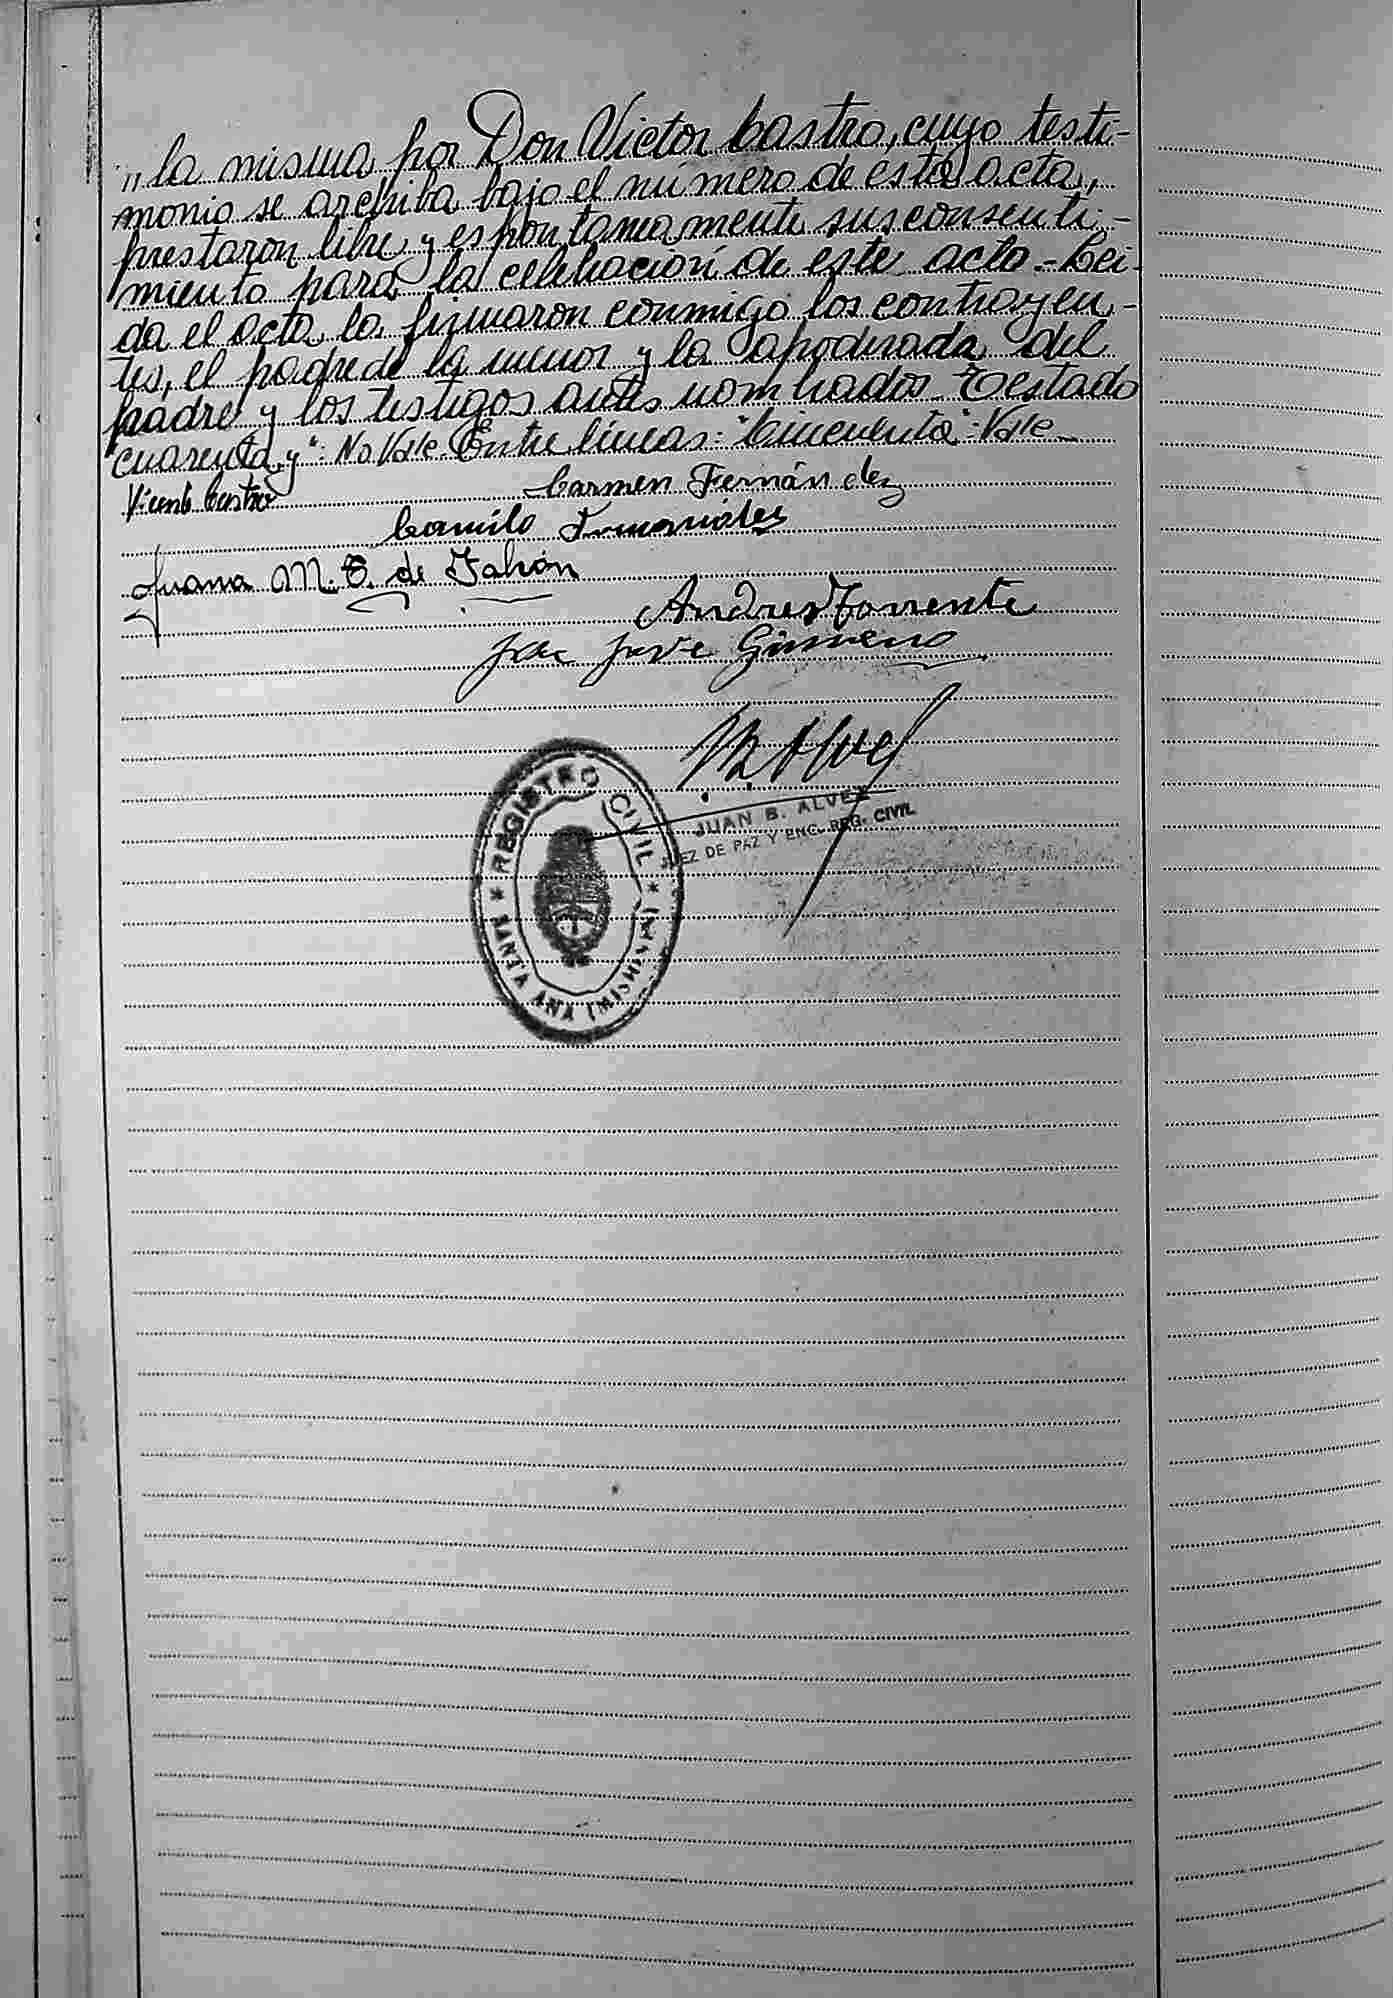 „la misma por Don Victor Castro, cuyo testi-
monio se archiba bajo el número de esta acta,
prestaron libre y espontaneamente sus consenti-
miento para la celebración de este acto.- Lei-
da el acta la firmaron conmigo los contrayen-
tes, el padre de la menor y la apoderada del
padre y los testigos antes nombrados. Testado
cuarenta y": No Vale. Entre lineas: "Cincuenta": Vale
Vicente Castro
Carmen Fernández
Camilo Fernández
Juana M. de
Andres Torrente
José Gimeno
JUAN B. ALVEZ
JUEZ DE PAZ Y ENC. REG. CIVIL
REGISTRO CIVIL
SANTA ANA (MISIONES)